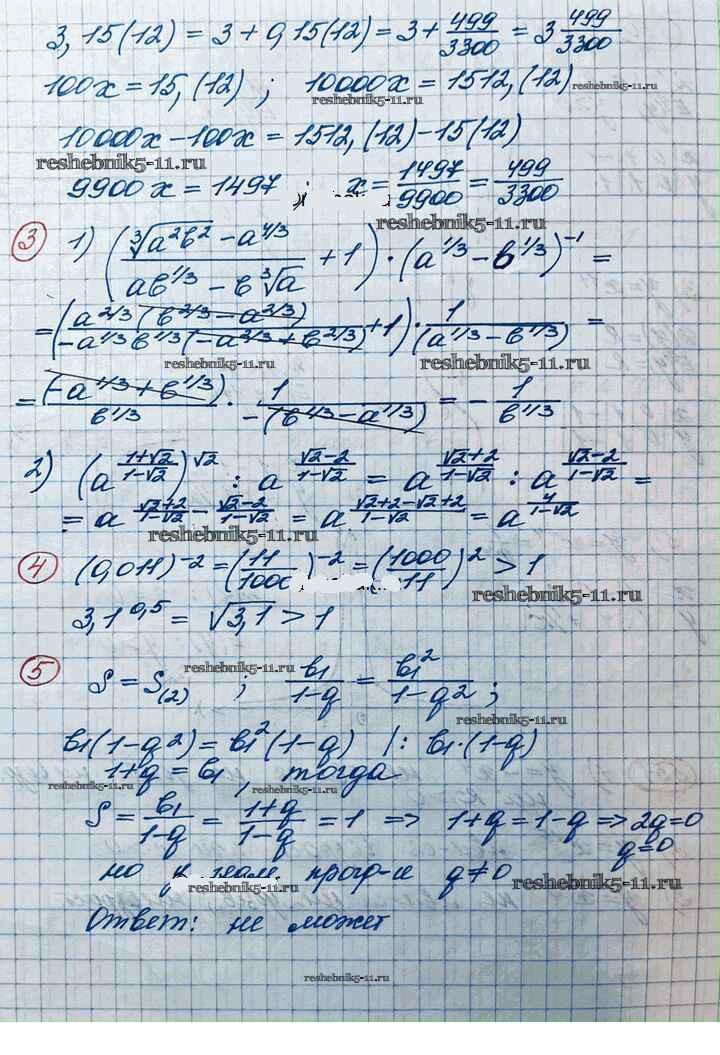 3,15(12) = 3 + 0,15(12) = 3 + 499/3300 = 3 499/3300
100x = 15,(12) ; 10000x = 1512,(12)
reshebnik5-11.ru
10000x − 100x = 1512,(12) − 15(12)
reshebnik5-11.ru
9900x = 1497 ; x = 1497/9900 = 499/3300
reshebnik5-11.ru
③ 1) ((∛(a²b²) − a^(4/3))/(ab^(1/3) − b∛a) + 1) · (a^(1/3) − b^(1/3))^(−1) =
= ((a^(2/3)(b^(2/3) − a^(2/3)))/(−a^(1/3)b^(1/3)(−a^(2/3) + b^(2/3))) + 1) · 1/(a^(1/3) − b^(1/3)) =
reshebnik5-11.ru reshebnik5-11.ru
= (−a^(1/3) + b^(1/3))/b^(1/3) · 1/(−(b^(1/3) − a^(1/3))) = − 1/b^(1/3)
2) (a^((1+√2)/(1−√2)))^√2 : a^((√2−2)/(1−√2)) = a^((√2+2)/(1−√2)) : a^((√2−2)/(1−√2)) =
= a^((√2+2)/(1−√2) − (√2−2)/(1−√2)) = a^((√2+2−√2+2)/(1−√2)) = a^(4/(1−√2))
reshebnik5-11.ru
④ (0,011)^(−2) = (11/1000)^(−2) = (1000/11)² > 1
reshebnik5-11.ru
3,1^(0,5) = √3,1 > 1
⑤ S = S₍₂₎ ; b₁/(1−q) = b₁²/(1−q²) ;
reshebnik5-11.ru
reshebnik5-11.ru
b₁(1−q²) = b₁²(1−q) |: b₁·(1−q)
1+q = b₁, тогда
reshebnik5-11.ru
S = b₁/(1−q) = (1+q)/(1−q) = 1 ⇒ 1+q = 1−q ⇒ 2q = 0
q = 0
но прогр-и q ≠ 0
reshebnik5-11.ru reshebnik5-11.ru
Ответ: не может
reshebnik5-11.ru